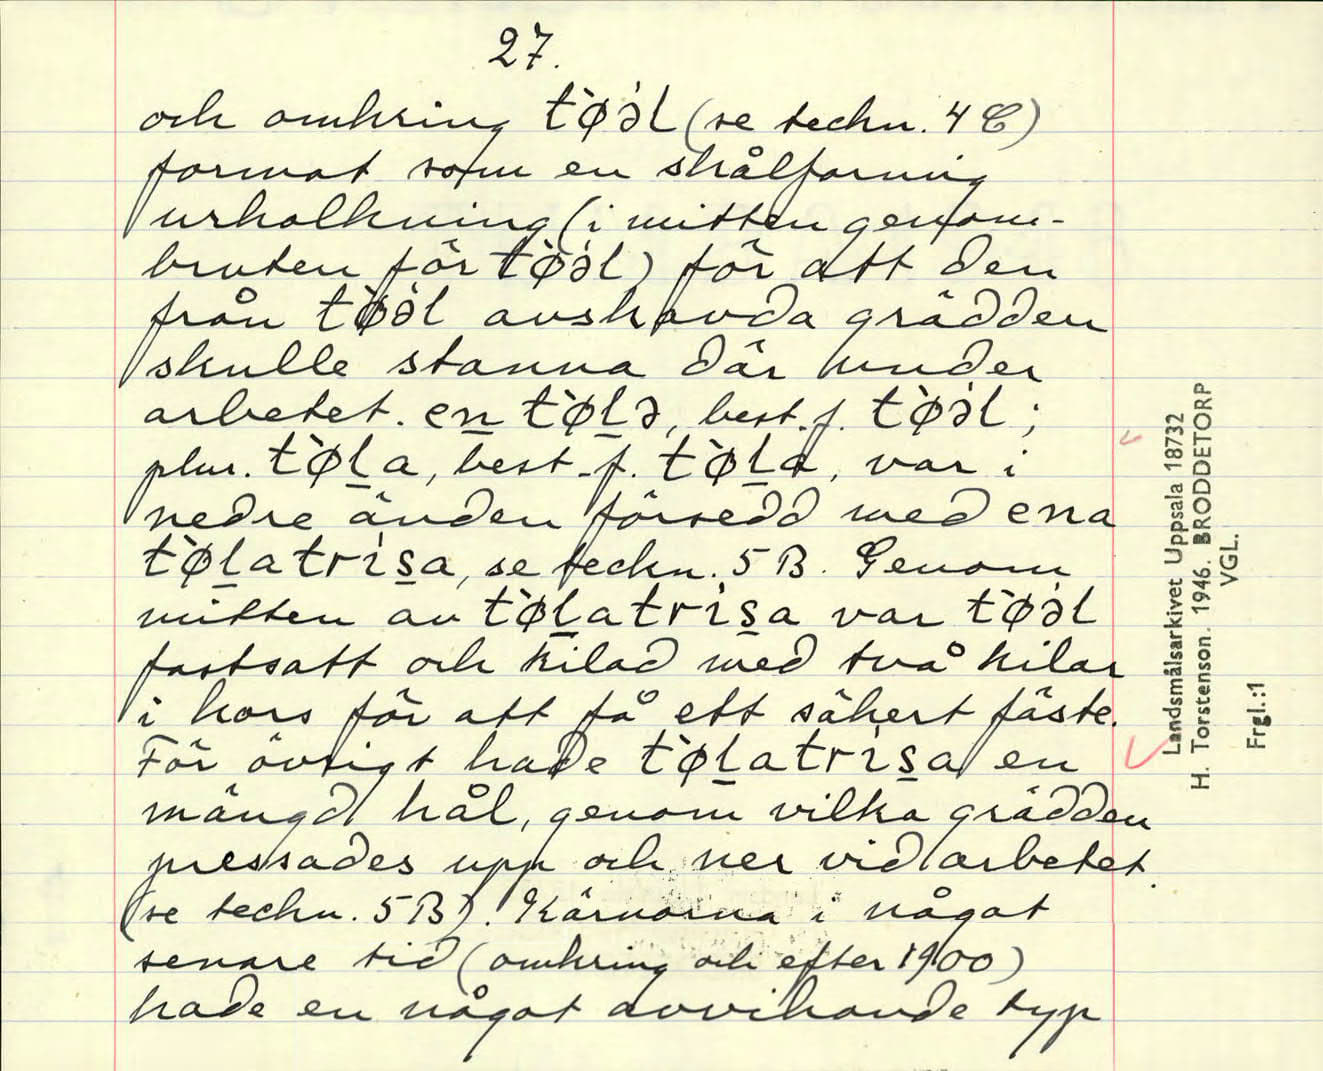 27.
och omkring tø̀əl (se teckn. 4 C)
format som en skålformig
urholkning (i mitten genom-
bruten för tø̀əl) för att den
från tø̀əl avskavda grädden
skulle stanna där under
arbetet. en̲ tø̀l̲ə, best. f. tø̀əl;
plur. tø̀l̲a, best. f. tø̀l̲a, var i
nedre änden försedd med ena
tø̀l̲atrìs̲a, se teckn. 5 B. Genom
mitten av tø̀l̲atrìs̲a var tø̀əl
fastsatt och kilad med två kilar
i kors för att få ett säkert fäste.
För övrigt hade tø̀l̲atrìs̲a en
mängd hål, genom vilka grädden
pressades upp och ner vid arbetet.
(se teckn. 5 B). Kärnorna i något
senare tid (omkring och efter 1900)
hade en något avvikande typ
Landsmålsarkivet Uppsala 18732
H. Torstenson. 1946. BRODDETORP
VGL.
Frgl.:1